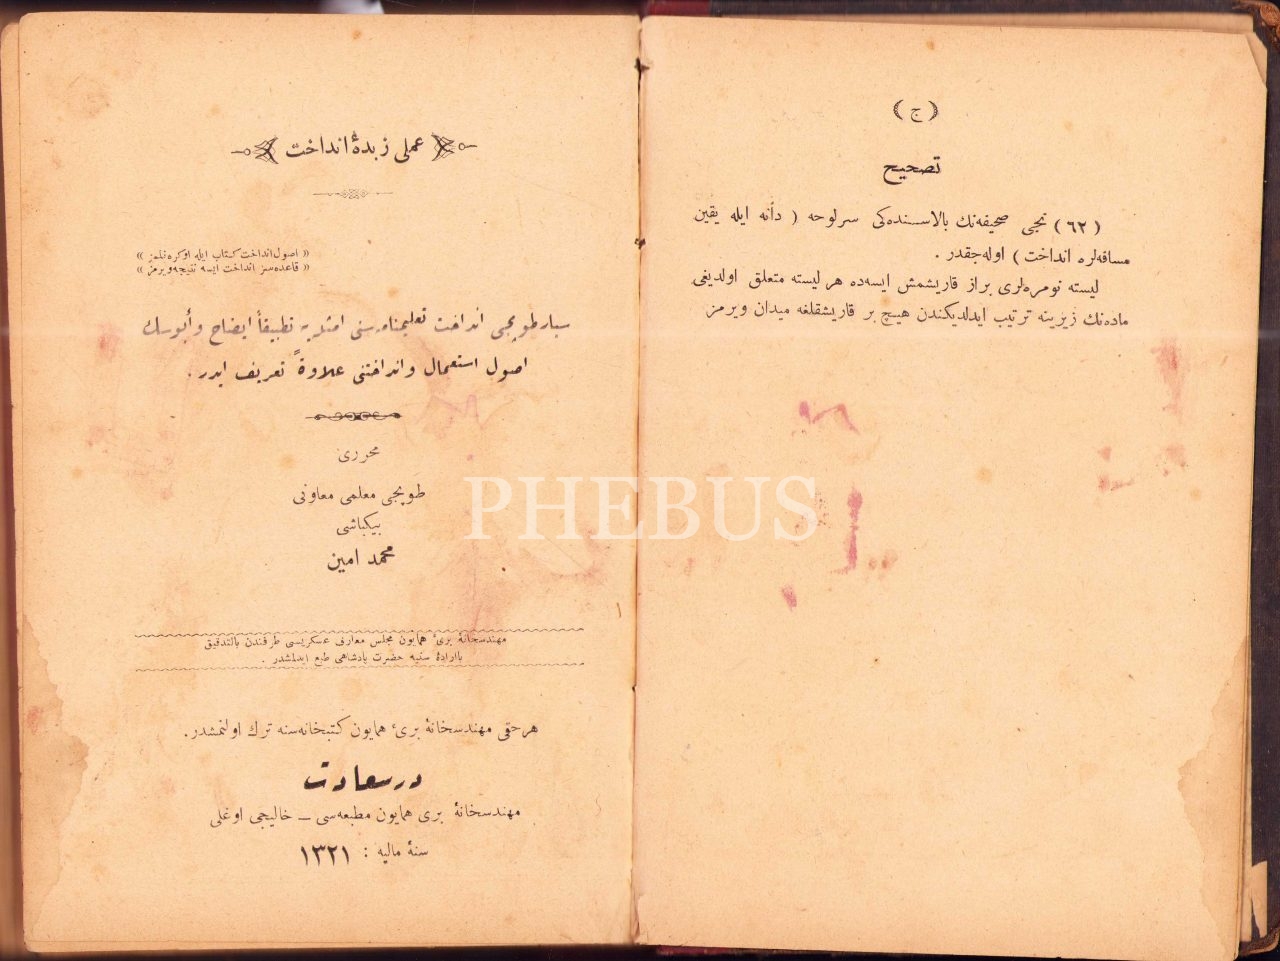 ( ج )
تصحيح
( ٦٢ ) نجی صحیفه‌نك بالاسنده‌كی سرلوحه ( دانه ایله یقین
مسافه‌لره انداخت ) اوله‌جقدر .
لیسته نومره‌لری براز قاریشمش ایسه‌ده هر لیسته متعلق اولدیغی
ماده‌نك زیرینه ترتیب ایدلدیكندن هیچ بر قاریشقلغه میدان ویرمز
عملی زبدۀ انداخت
« اصول انداخت كتاب ایله اوكره‌نلمز »
« قاعده‌سز انداخت ایسه نتیجه ویرمز »
سیار طوپجی انداخت تعلیمنامه‌سنی امثله ایله تطبیقاً ایضاح و آبوسك
اصول استعمال وانداختنی علاوةً تعریف ایدر .
محرری
طوپجی معلمی معاونی
بیكباشی
محمد امین
مهندسخانۀ برئ همایون مجلس معارف عسكریسی طرفندن بالتدقیق
باارادۀ سنیه حضرت پادشاهی طبع ایدلمشدر .
هر حقی مهندسخانۀ برئ همایون كتبخانه‌سنه ترك اولنمشدر .
درسعادت
مهندسخانۀ بری همایون مطبعه‌سی ــ خالیجی اوغلی
سنۀ مالیه : ١٣٢١
PHEBUS